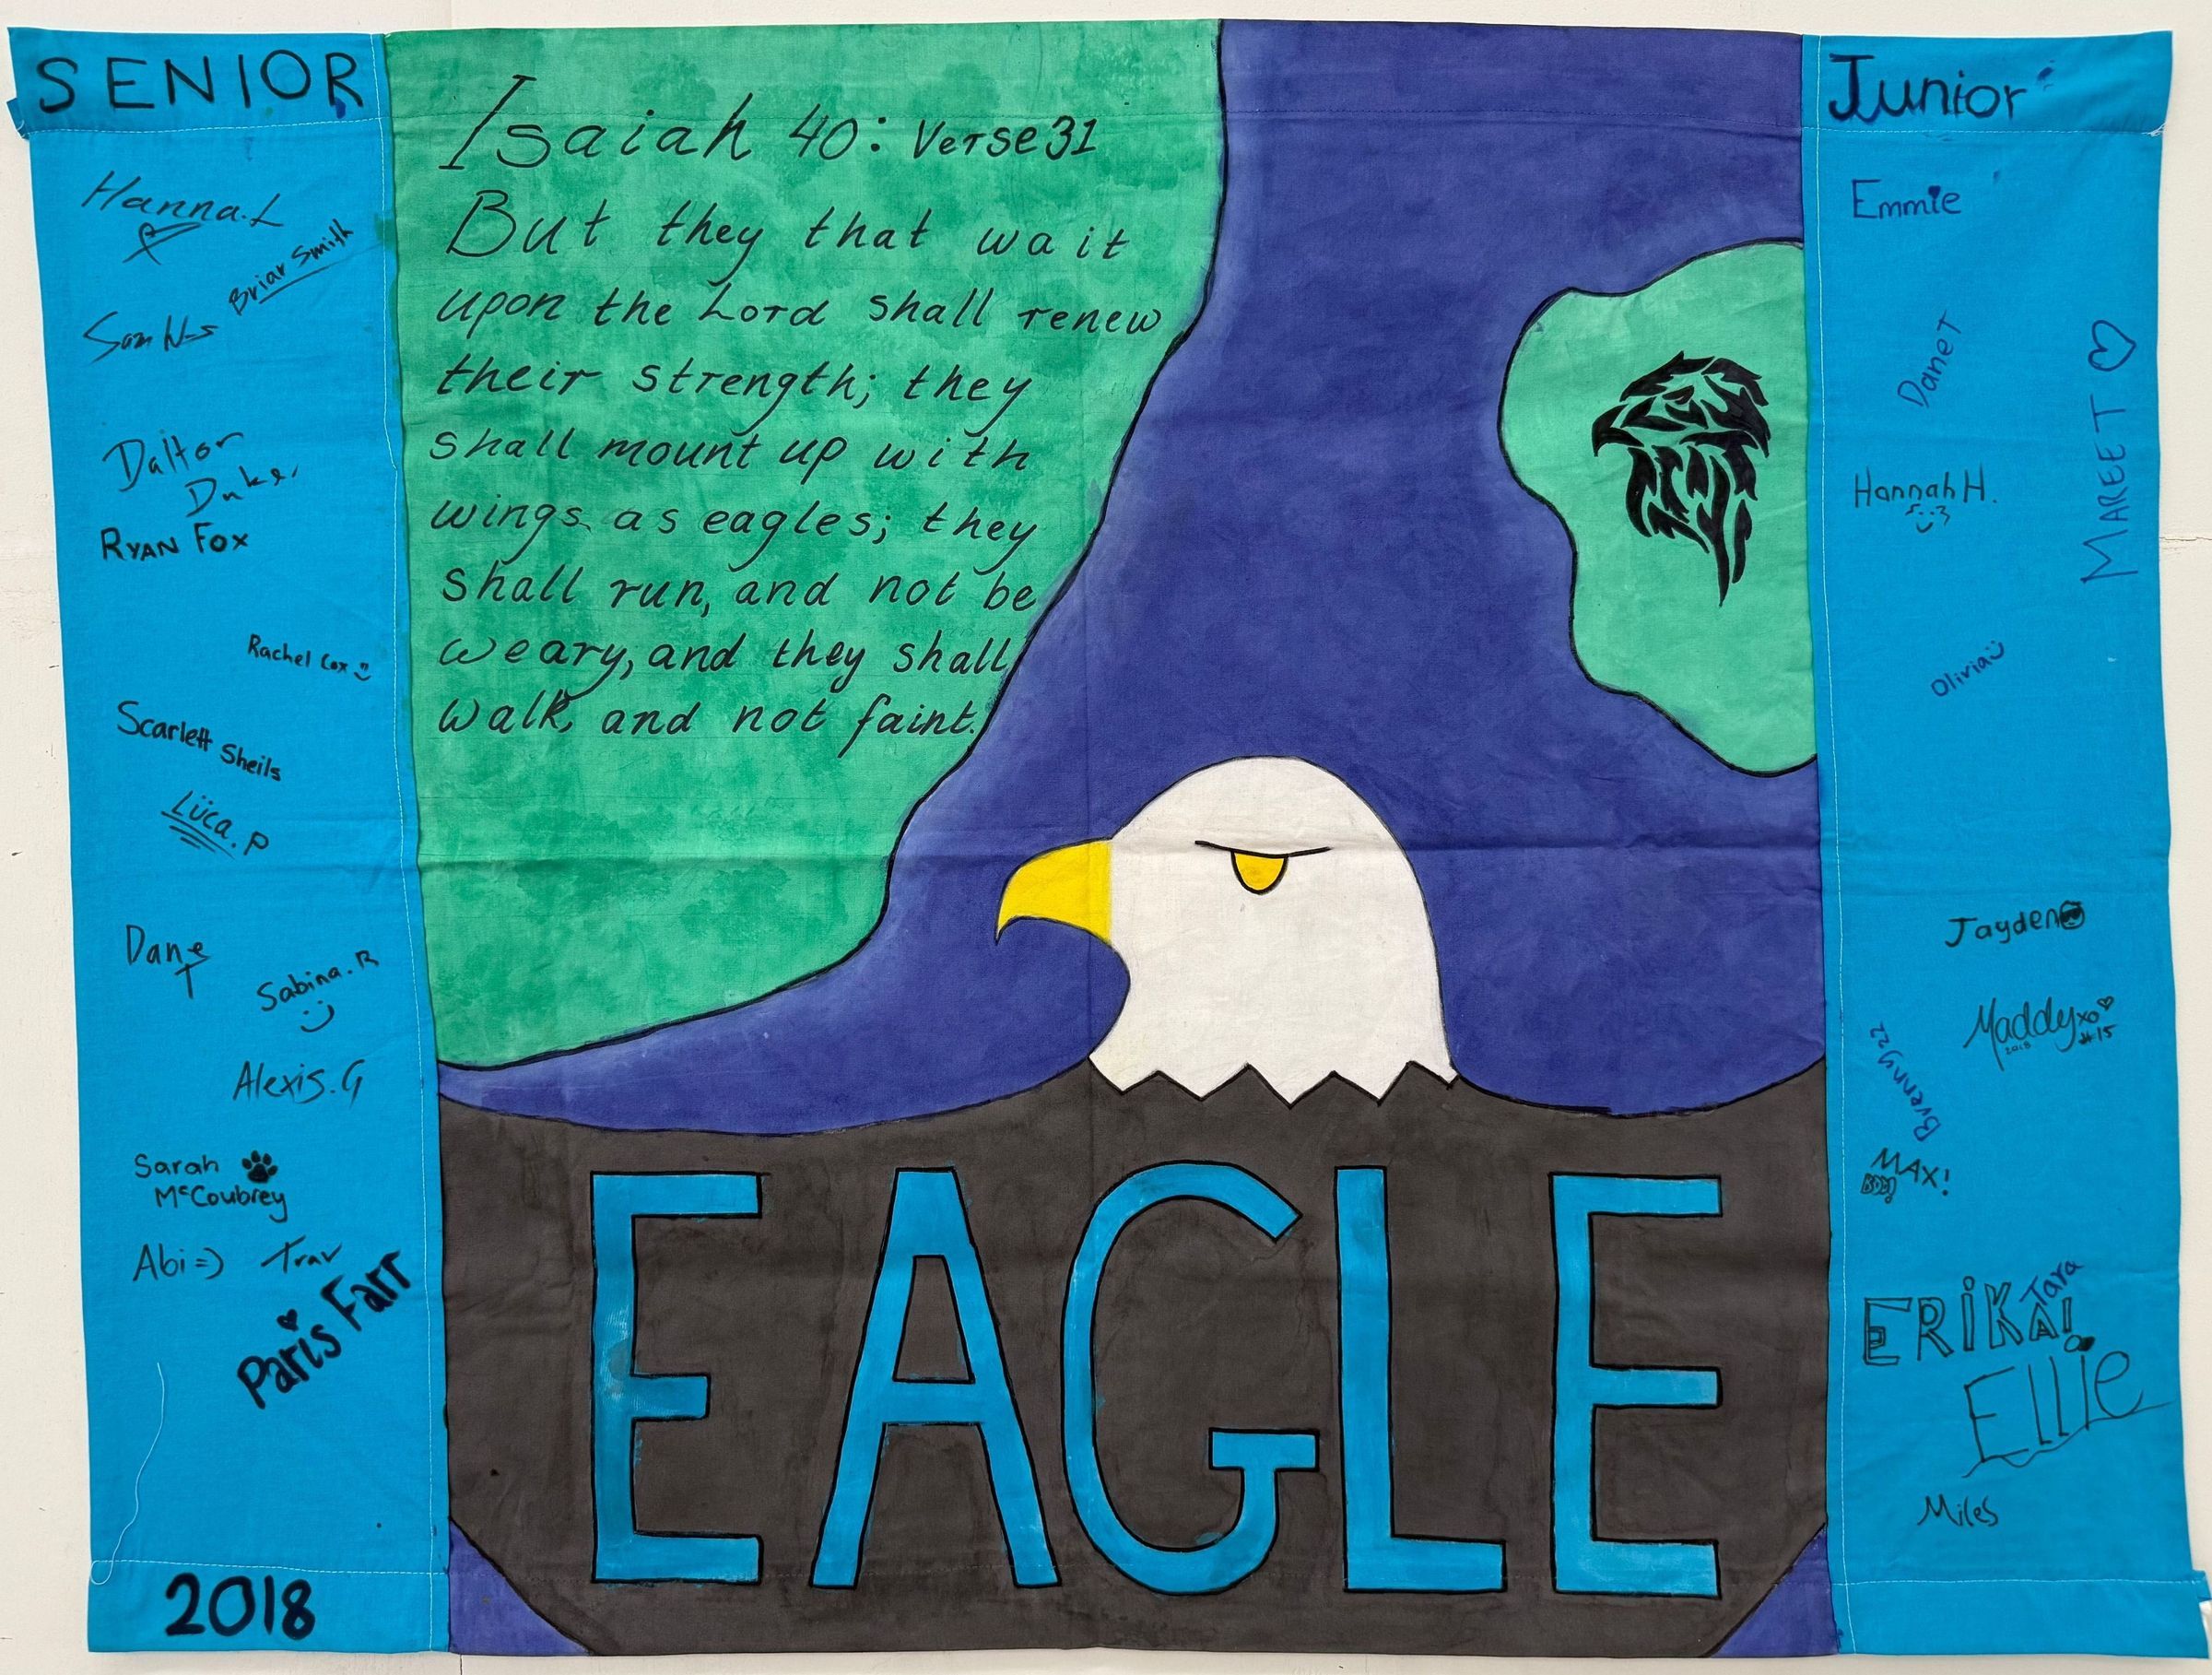 SENIOR
Hanna.L
Briar Smith
Dalton
Duke.
RYAN FOX
Rachel Cox
Scarlett Sheils
Lüca.P
Dane
T
Sabina.R
:)
Alexis.G
Sarah
McCoubrey
Abi =)
Trav
Paris Farr
2018
Isaiah 40: Verse 31
But they that wait
upon the Lord shall renew
their strength; they
shall mount up with
wings as eagles; they
shall run, and not be
weary, and they shall
walk, and not faint.
EAGLE
Junior
Emmie
Dane T
MAREET
Hannah H.
Olivia
Jayden
Maddy xo
2018
#15
Brenny 22
MAX!
ERIKA!
Tara
Ellie
Miles